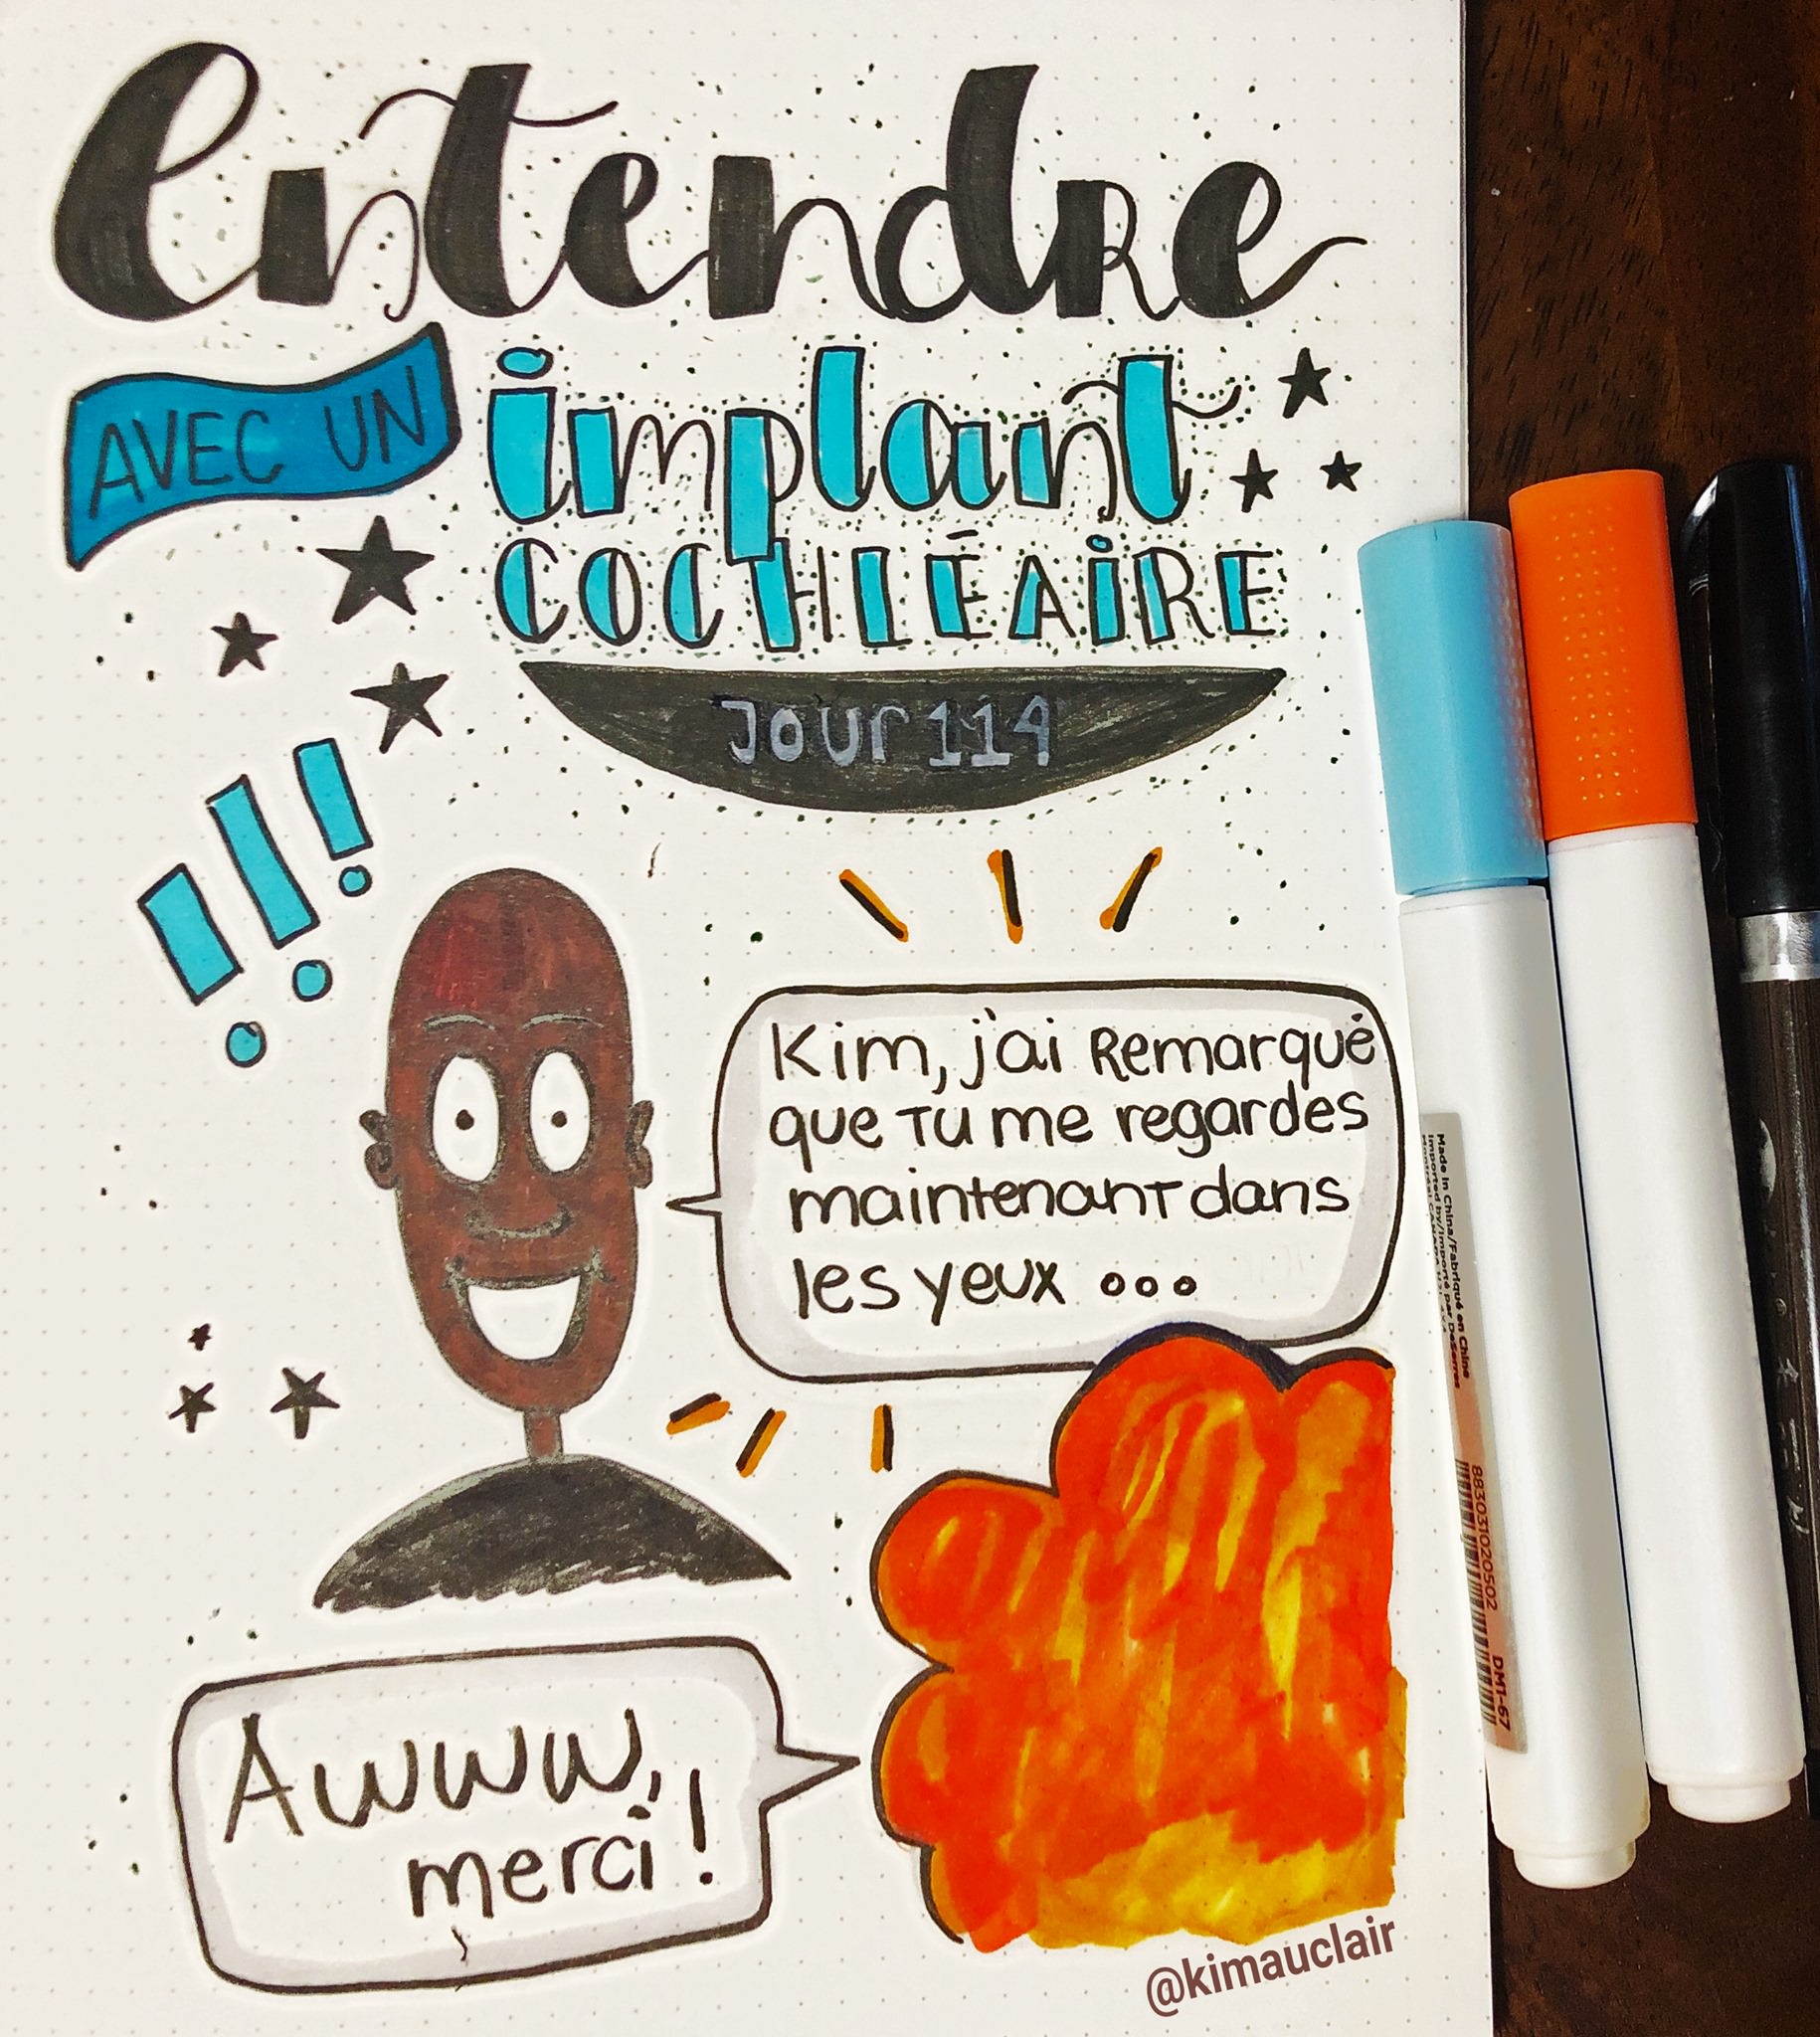 Entendre
AVEC UN
implant
COCHLÉAIRE
Jour 114
Kim, j'ai Remarqué
que Tu me regardes
maintenant dans
les yeux ...
Awww,
merci!
@kimauclair
Made in China/Fabriqué en Chine
Imported by/Importé par DeSerres
883031020502
DM1-67